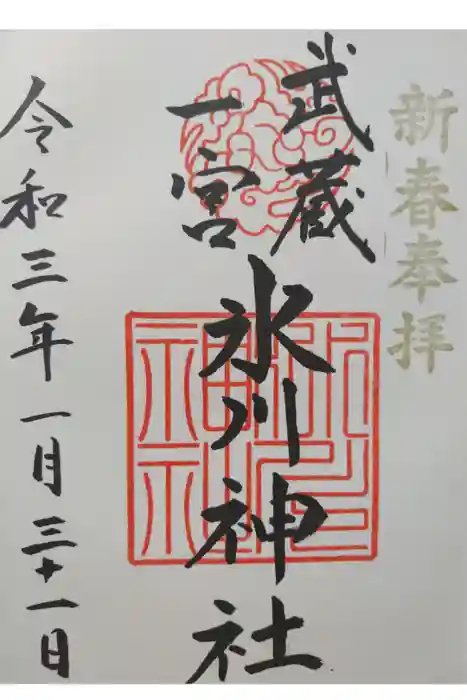 新春奉拝
武蔵
一宮
氷川神社
令和三年一月三十一日
氷川
神社